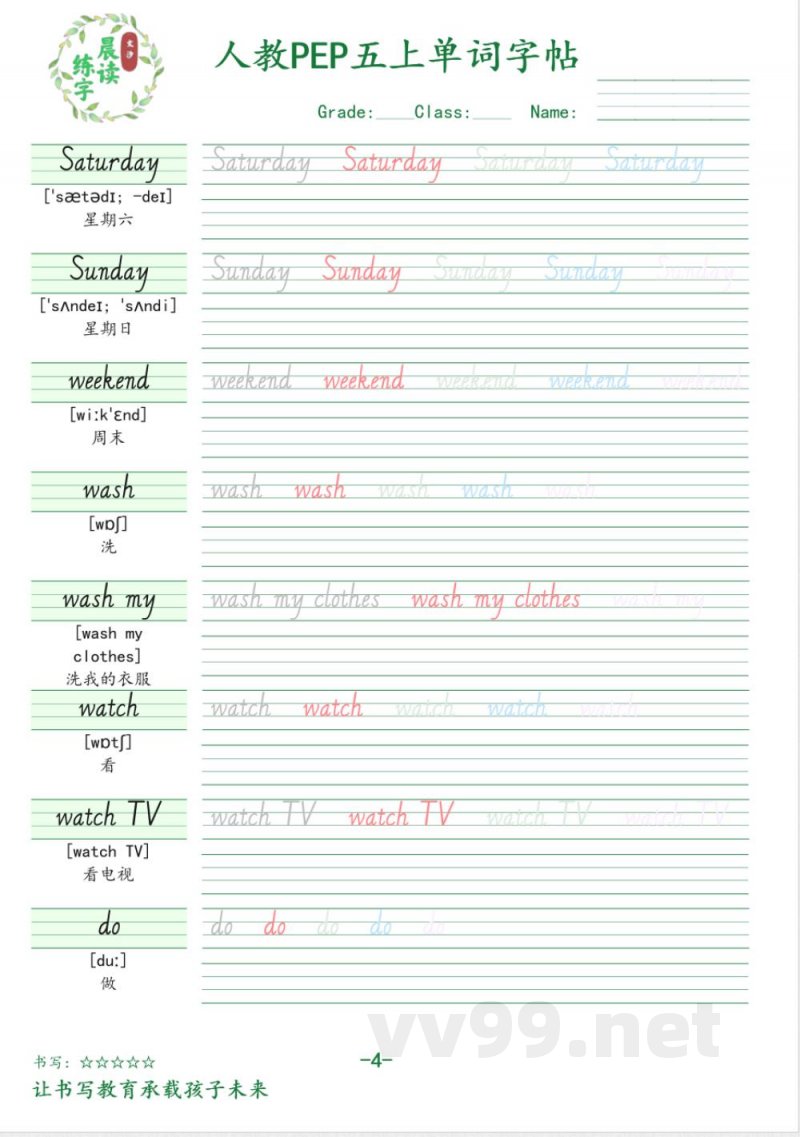 文汐
晨读
练字
人教PEP五上单词字帖
Grade:____Class:____ Name:
Saturday Saturday Saturday Saturday Saturday
['sætədɪ; -deɪ]
星期六
Sunday Sunday Sunday Sunday Sunday Sunday
['sʌndeɪ; 'sʌndi]
星期日
weekend weekend weekend weekend weekend weekend
[wiːk'ɛnd]
周末
wash wash wash wash wash wash
[wɒʃ]
洗
wash my wash my clothes wash my clothes wash my
[wash my
clothes]
洗我的衣服
watch watch watch watch watch watch
[wɒtʃ]
看
watch TV watch TV watch TV watch TV watch TV
[watch TV]
看电视
do do do do do do
[duː]
做
vv99.net
书写：☆☆☆☆☆
-4-
让书写教育承载孩子未来